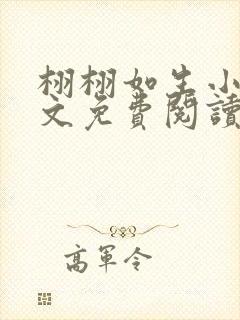 栩栩如生小
文免費閱讀
高軍令